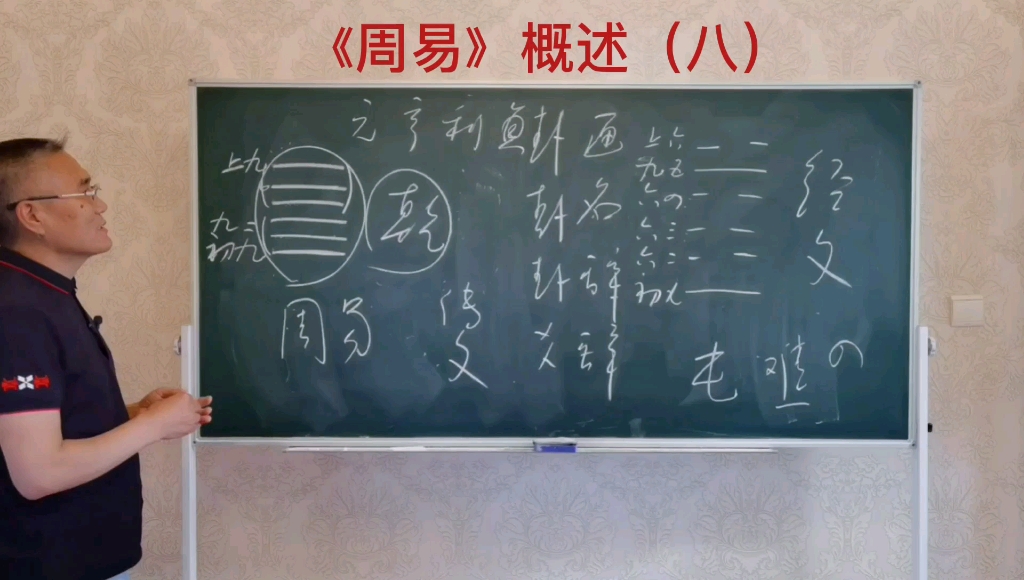 《周易》概述（八）
元亨利貞
上九
九二
初九
乾
周易
传文
卦画
卦名
卦辞
爻辞
上六
九五
六四
六三
六二
初九
经文
屯